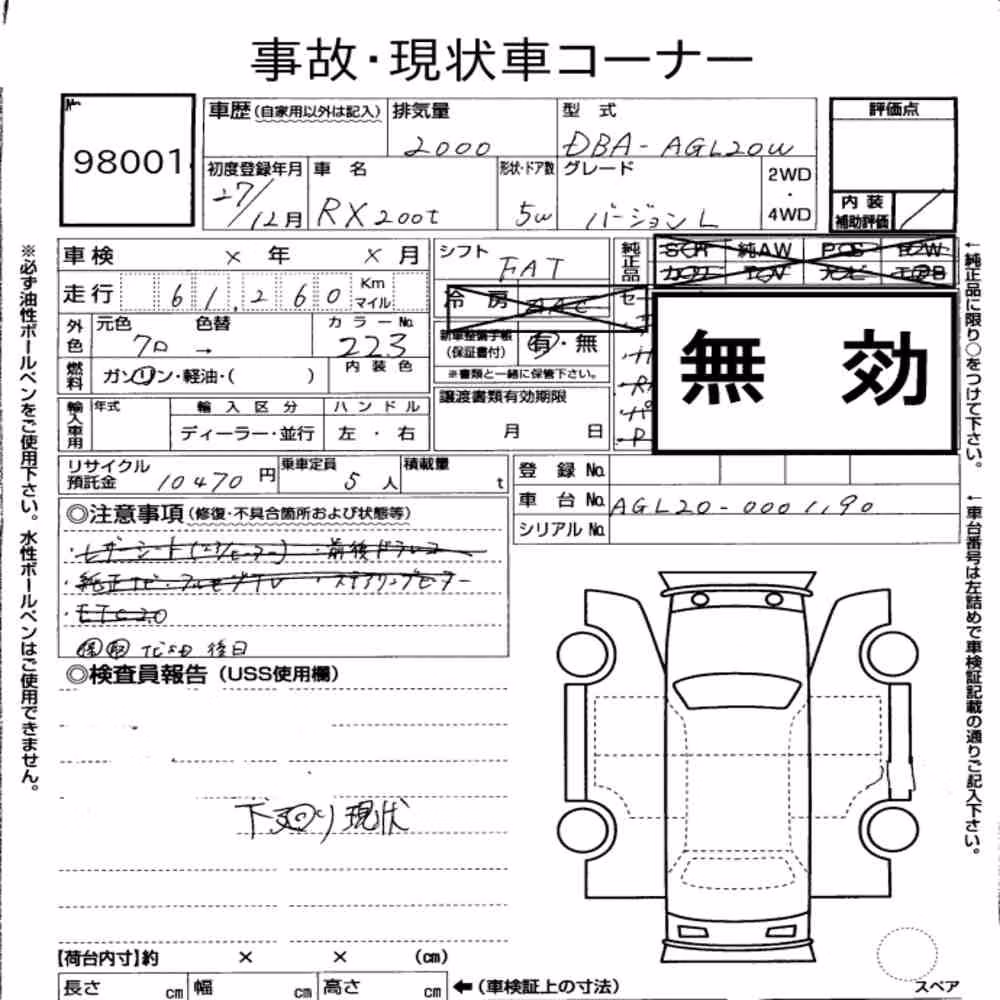 事故・現状車コーナー
No.
98001
車歴(自家用以外は記入) 排気量 型式 評価点
2000 DBA-AGL20W
初度登録年月 車名 形状・ドア数 グレード 2WD・4WD
27/12月 RX200t 5W バージョンL
内装補助評価 /
車検 × 年 × 月 シフト FAT 純正品
走行 61,260 Km マイル 冷房 AAC
外色 元色 色替 カラーNo.
クロ → 223
新車整備手帳(保証書付) 有・無
※書類と一緒に保管下さい。
燃料 ガソリン・軽油・( ) 内装色
譲渡書類有効期限
月 日
輸入車用 年式 輸入区分 ハンドル
ディーラー・並行 左・右
無効
リサイクル預託金 10470円 乗車定員 5人 積載量 t
登録No.
車台No. AGL20-0001190
シリアルNo.
◎注意事項(修復・不具合箇所および状態等)
・前後ドラレコ
・純正ナビ・フルセグTV ・ステアリングヒーター
・ETC2.0
後日
◎検査員報告(USS使用欄)
下廻り現状
【荷台内寸】約 × × (cm)
長さ cm 幅 cm 高さ cm ←(車検証上の寸法)
スペア
※必ず油性ボールペンをご使用下さい。水性ボールペンはご使用できません。
←純正品に限り○をつけて下さい。
←車台番号は左詰めで車検証記載の通りご記入下さい。